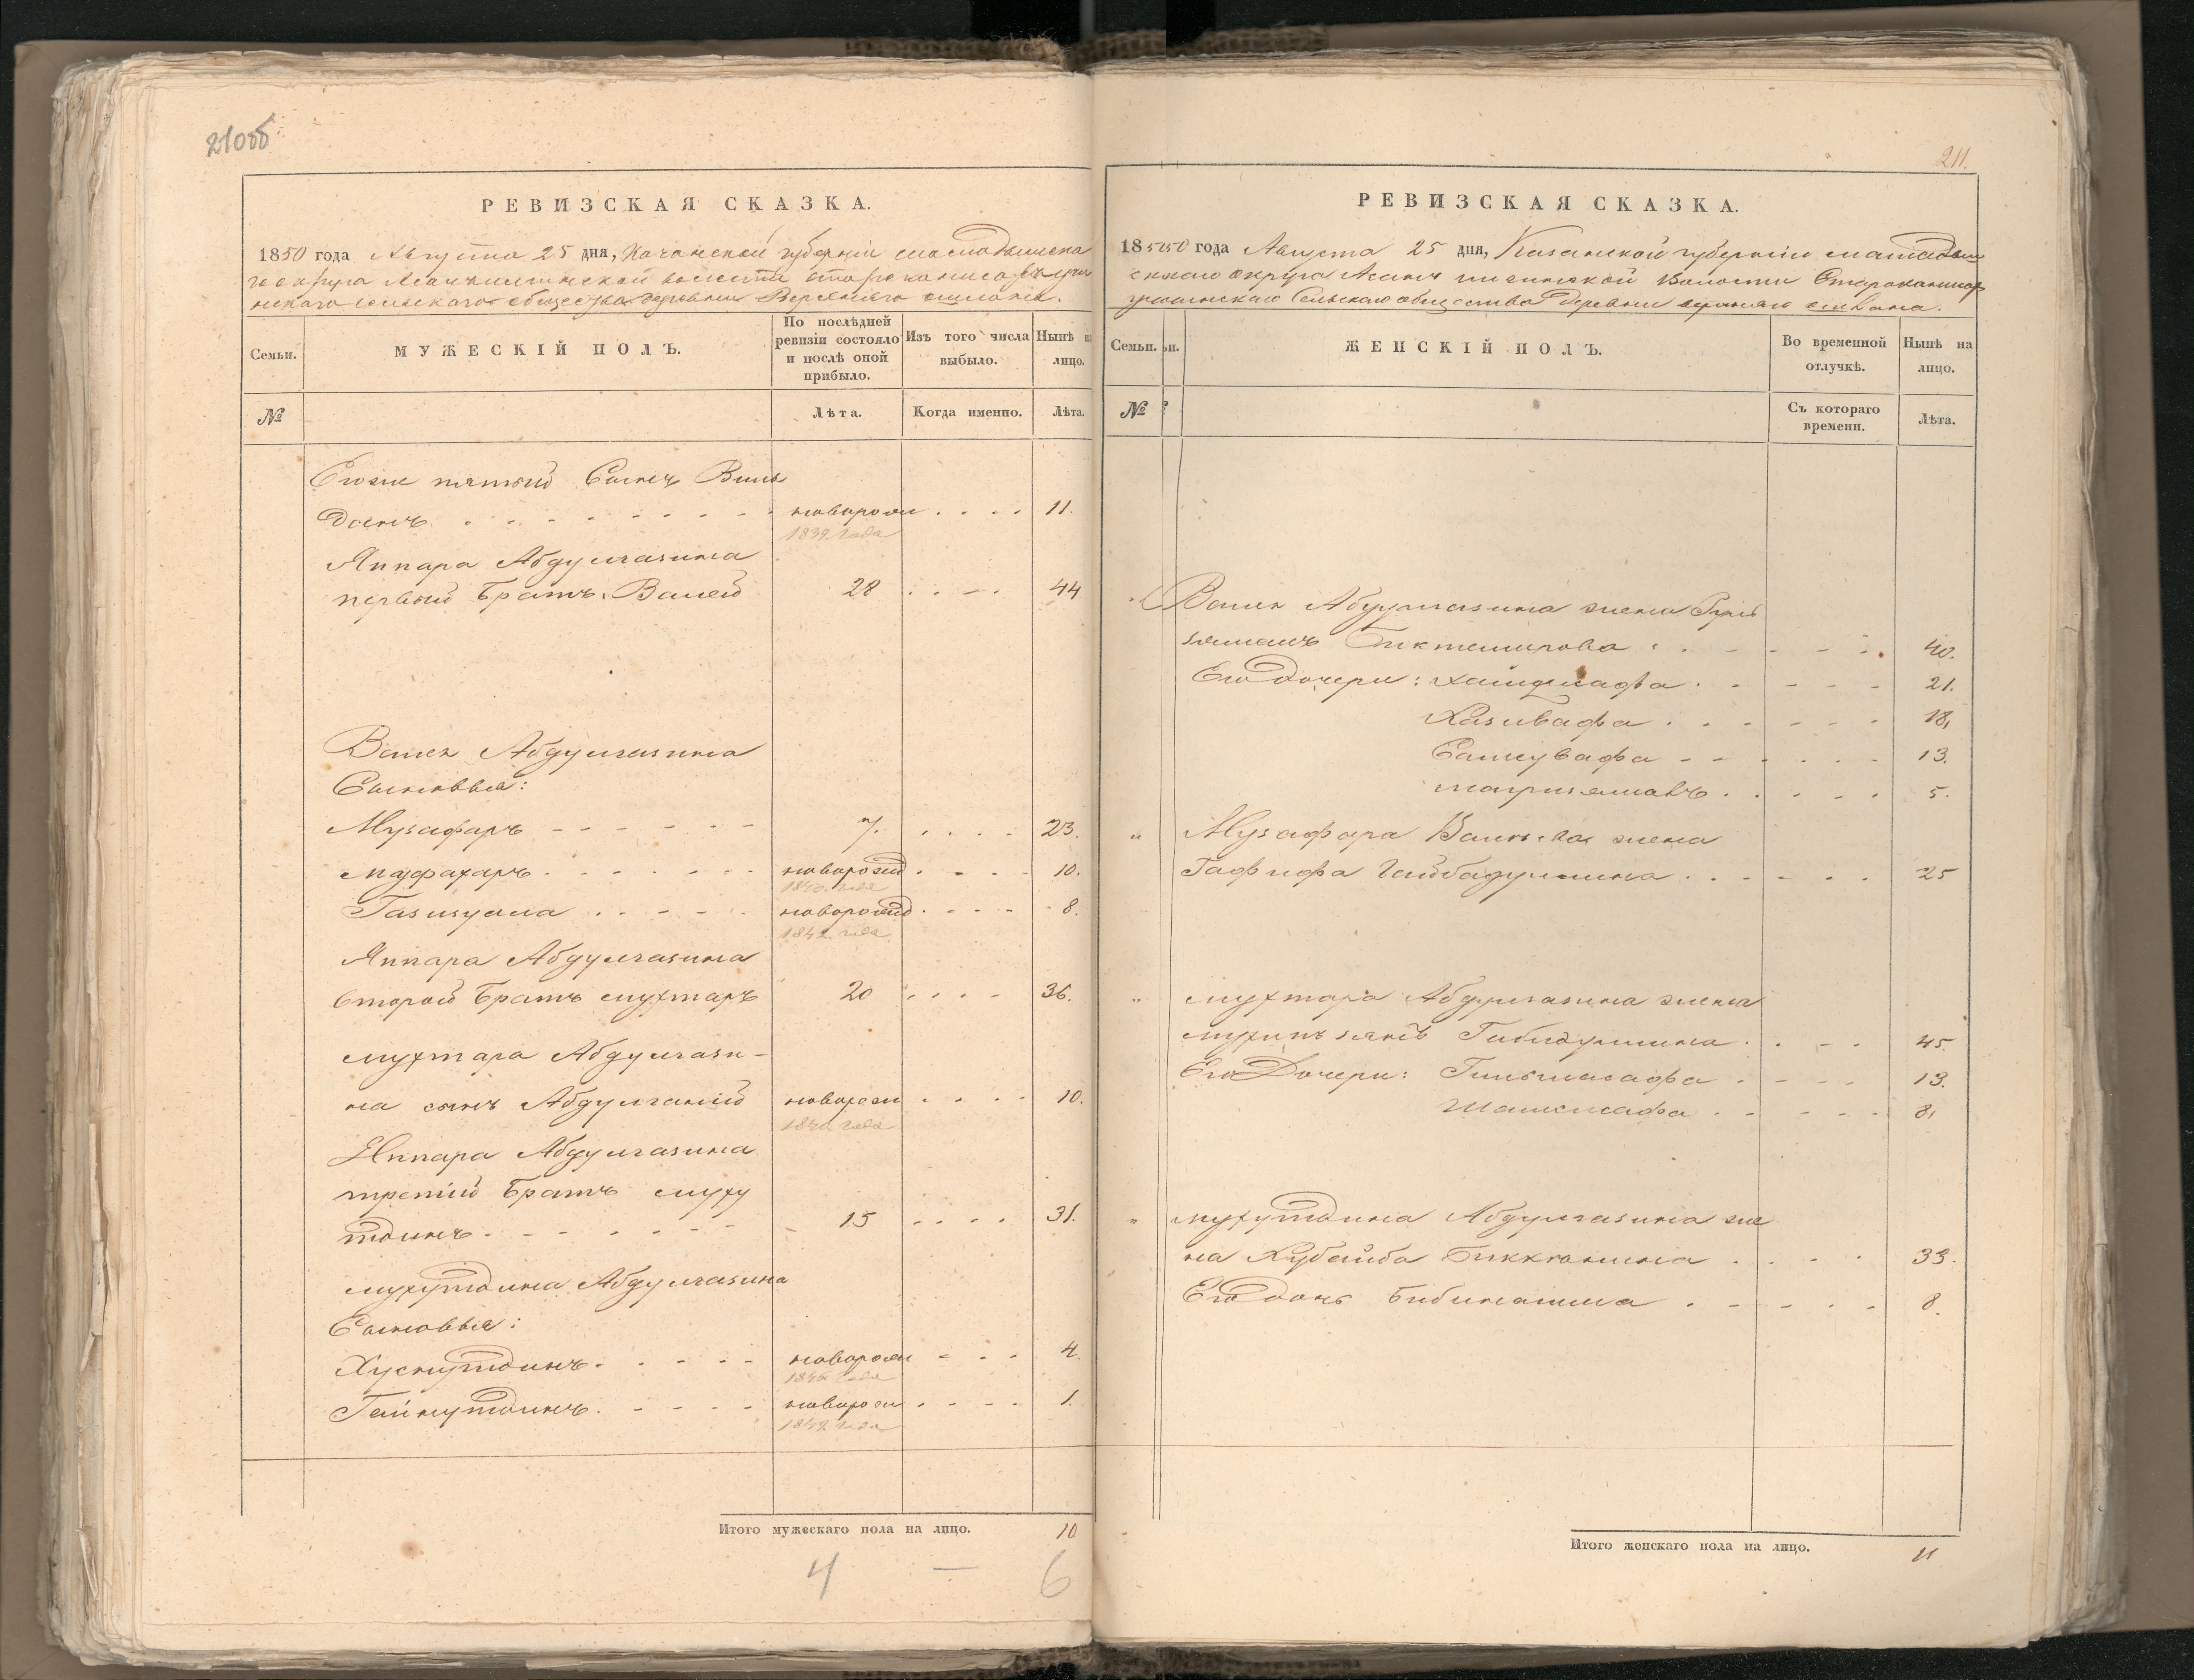 210об
РЕВИЗСКАЯ СКАЗКА.
1850 года Августа 25 дня, Казанской губерніи мамадышска
го округа волости старо
сельскаго общества деревни Верхняго ошлана.
Семьи.
МУЖЕСКІЙ ПОЛЪ.
По послѣдней ревизіи состояло и послѣ оной прибыло.
Изъ того числа выбыло.
Нынѣ на лицо.
№
Лѣта.
Когда именно.
Лѣта.
Егоже пятый Сынъ Виль
данъ новорож 11.
1839 года
Яппара Абдулгазина
первый братъ Валей 28 44
Валея Абдулгазина
Сыновья:
Музафаръ 7. 23.
мафахаръ новорожд 10.
1840 года
Газизула новорожд 8.
1842 года
Яппара Абдулгазина
второй братъ мухтаръ 20 36.
мухтара Абдулгази-
на сынъ Абдулганій новорож 10.
1840 года
Яппара Абдулгазина
третій братъ муху
тдинъ 15 31.
мухутдина Абдулгазина
Сыновья:
Хуснутдинъ новорож 4.
1846 года
Гайнутдинъ новорож 1.
1849 года
Итого мужескаго пола на лицо. 10
4 — 6
211.
РЕВИЗСКАЯ СКАЗКА.
1850 года Августа 25 дня, Казанской губерніи мамадыш
скаго округа волости
Сельскаго общества деревни верхняго ошлана.
Семьи.
ЖЕНСКІЙ ПОЛЪ.
Во временной отлучкѣ.
Нынѣ на лицо.
№
Съ котораго времени.
Лѣта.
Валея Абдулгазина жена Гуль
земалъ Биктемирова 40.
Его дочери: 21.
Хазивафа 18.
Самувафа 13.
магризямалъ 5.
" Музафара Валеева жена
Гафифа Гайбадуллина 25
" мухтара Абдулгазина жена
Гибадуллина 45
Его Дочери: Гильмасафа 13.
Шамсисафа 8.
" мухутдина Абдулгазина же
на Хубайба Биккинина 33.
Его дочь Бибинагима 8.
Итого женскаго пола на лицо. 11